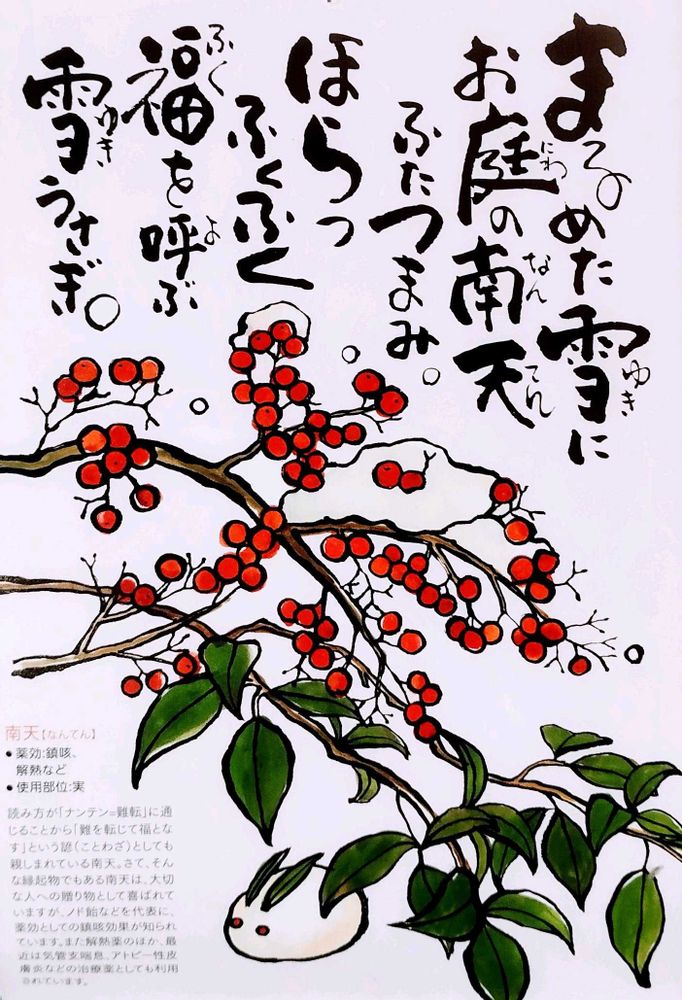 まるめた雪に
お庭の南天
ふたつまみ。
ほらっ
ふくふく
福を呼ぶ
雪うさぎ。
ゆき
にわ
なんてん
ふく
よ
ゆき
南天【なんてん】
●薬効:鎮咳、
解熱など
●使用部位:実
読み方が「ナンテン=難転」に通
じることから「難を転じて福とな
す」という諺(ことわざ)としても
親しまれている南天。さて、そん
な縁起物でもある南天は、大切
な人への贈り物として喜ばれて
いますが、ノド飴などを代表に、
薬効としての鎮咳効果が知られ
ています。また解熱薬のほか、最
近は気管支喘息、アトピー性皮
膚炎などの治療薬としても利用
されています。